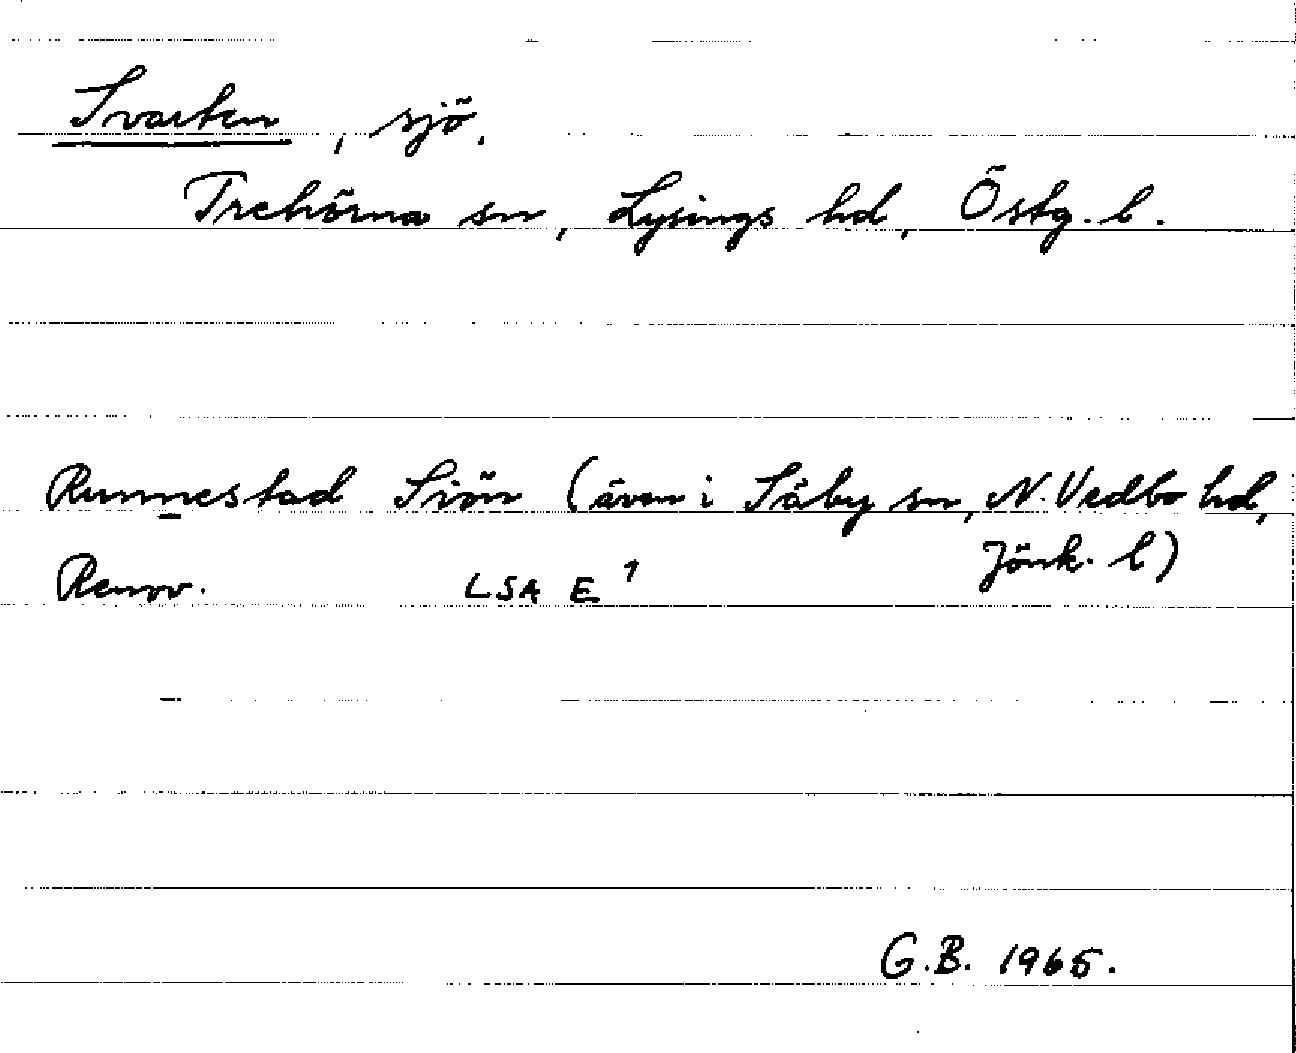 Svarten, sjö.
Trehörna sn, Lysings hd, Östg. l.
Runnestad Siön (även i Säby sn, N. Vedbo hd,
Jönk. l)
Renov. LSA E 1
G.B. 1965.